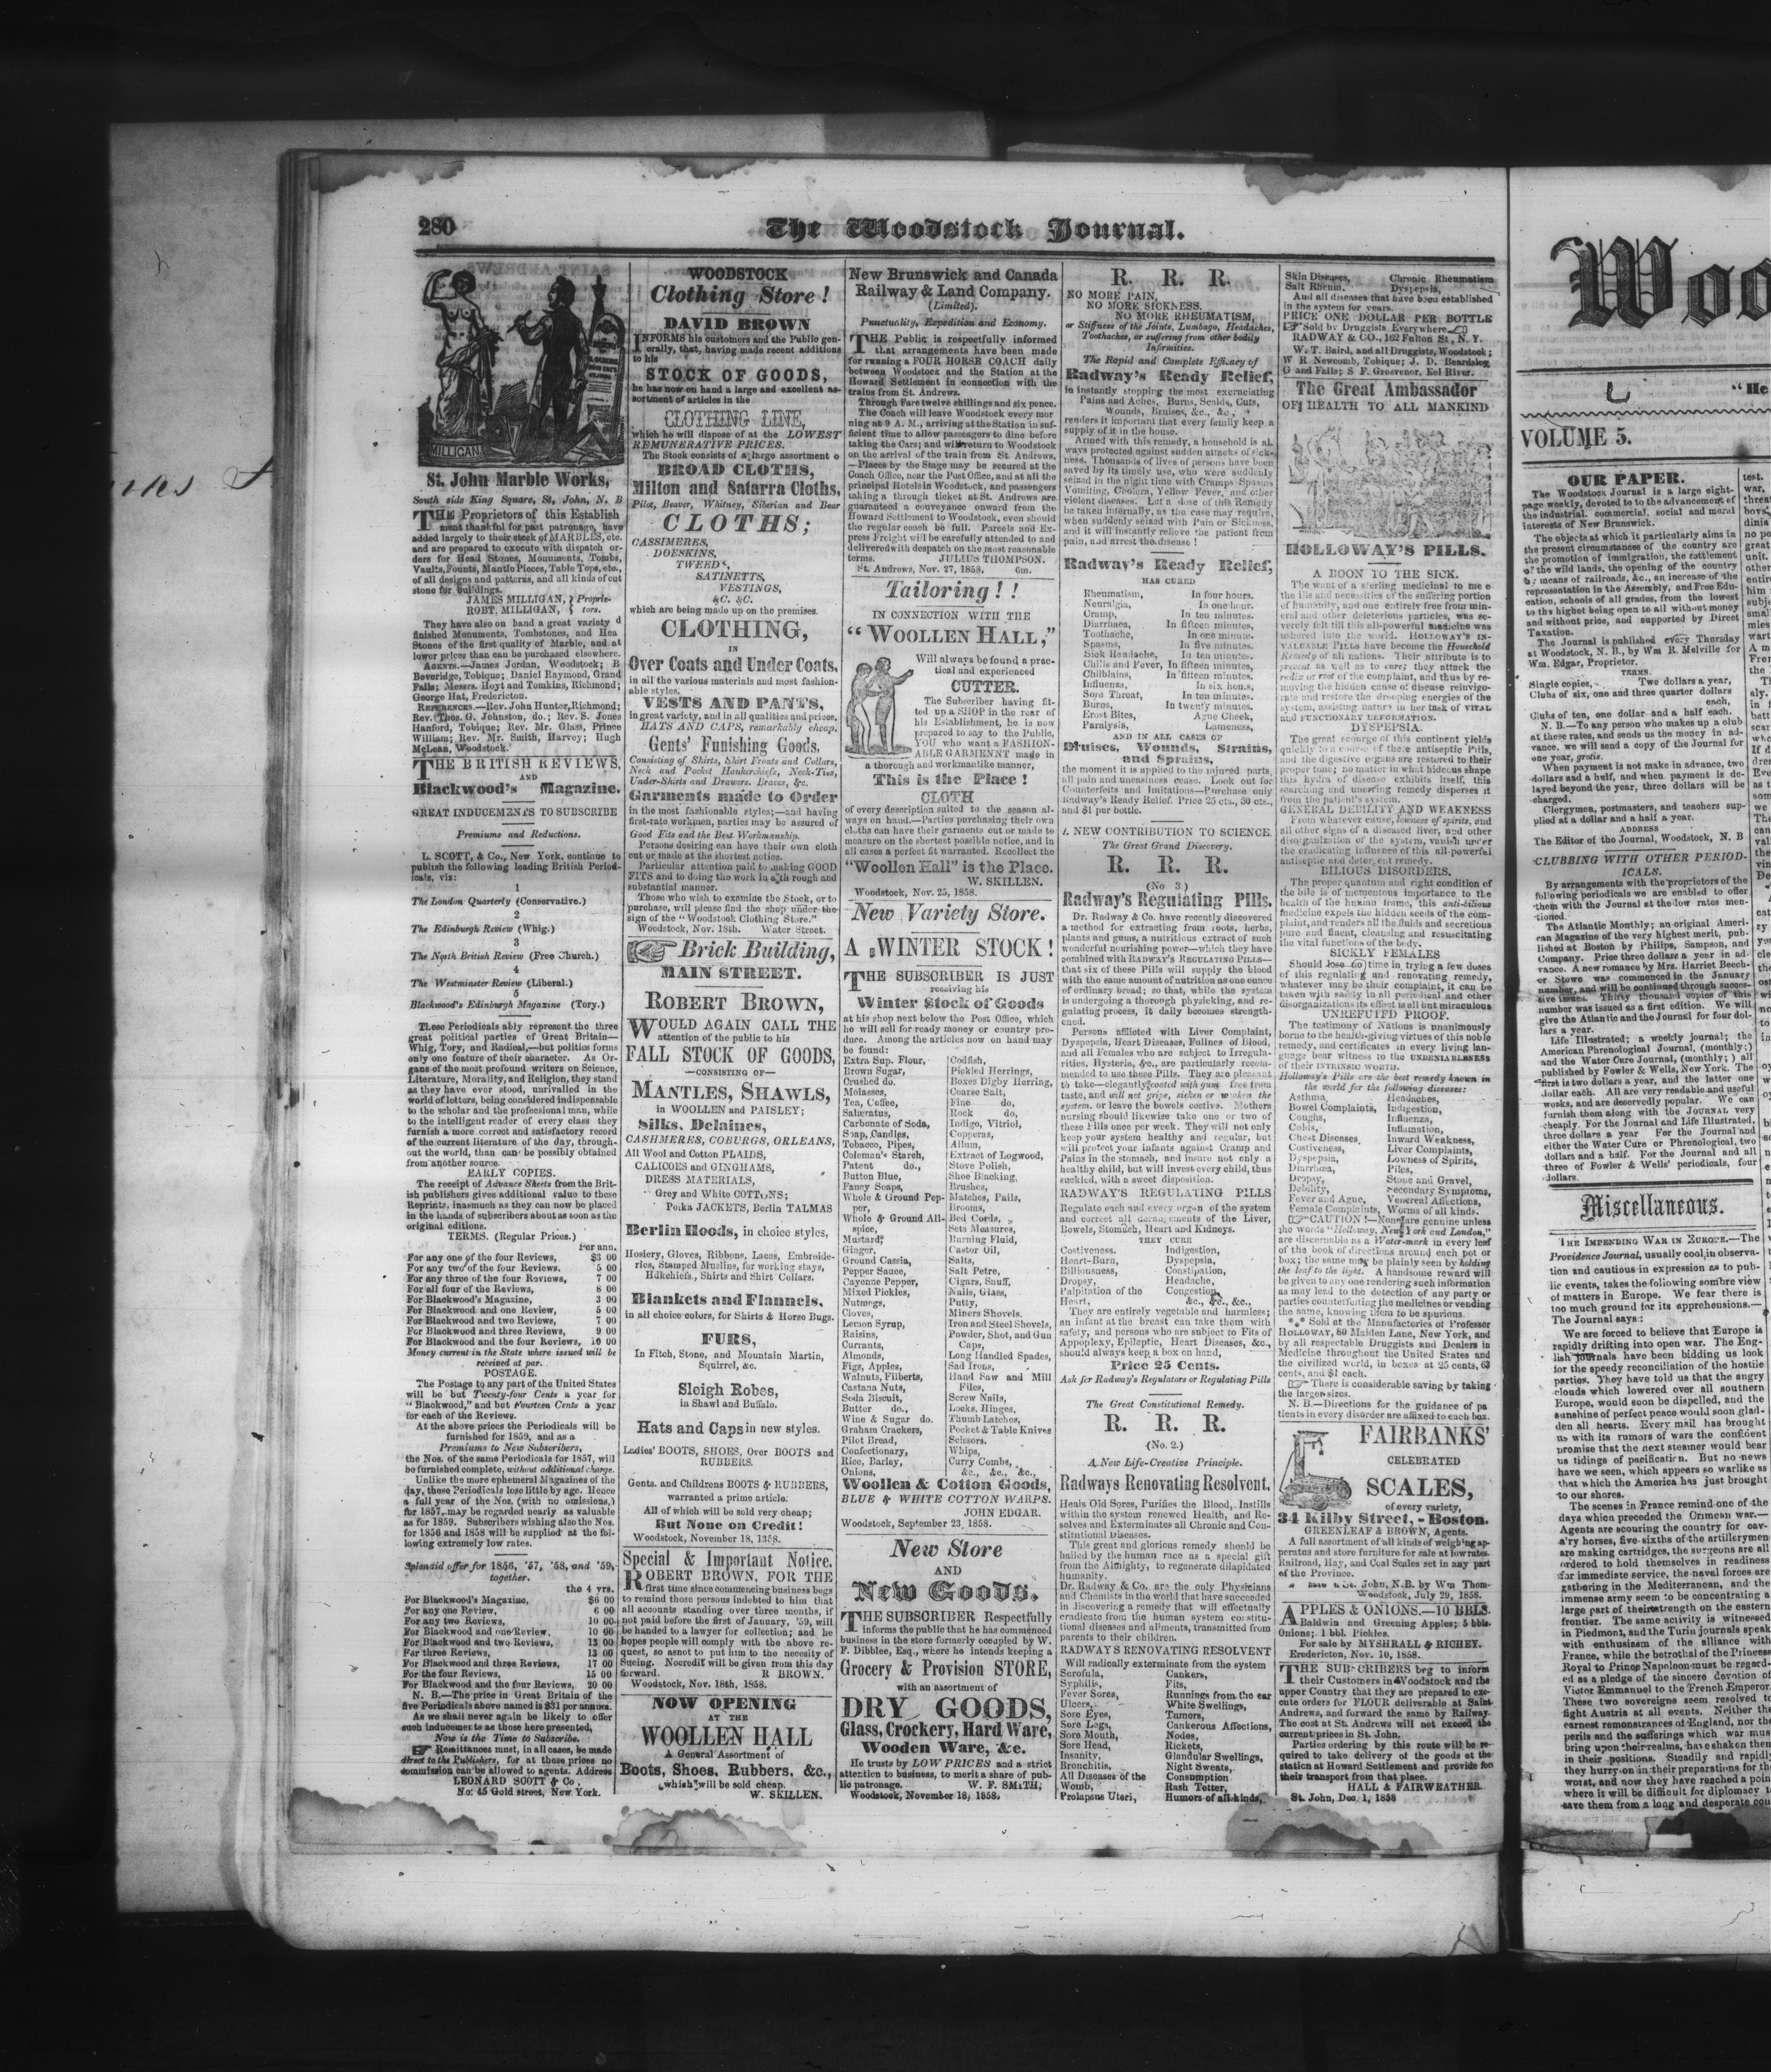 280
The Woodstock Journal.
MILLIGAN
St. John Marble Works,
South side King Square, St. John, N. B
THE Proprietors of this Establish
ment thankful for past patronage, have
added largely to their stock of MARBLES, etc.
and are prepared to execute with dispatch or-
ders for Head Stones, Monuments, Tombs,
Vaults, Founts, Mantle Pieces, Table Tops, etc.,
of all designs and patterns, and all kinds of cut
stone for buildings.
JAMES MILLIGAN, } Proprie-
ROBT. MILLIGAN, { tors.
They have also on hand a great variety d
finished Monuments, Tombstones, and Hea
Stones of the first quality of Marble, and at
lower prices than can be purchased elsewhere.
AGENTS.—James Jordan, Woodstock; B
Beveridge, Tobique; Daniel Raymond, Grand
Falls; Messrs. Hoyt and Tomkins, Richmond;
George Hat, Fredericton.
REFERENCES.—Rev. John Hunter, Richmond;
Rev. Thos. G. Johnston, do.; Rev. S. Jones
Hanford, Tobique; Rev. Mr. Glass, Prince
William; Rev. Mr. Smith, Harvey; Hugh
McLean, Woodstock.
THE BRITISH REVIEWS,
AND
Blackwood's Magazine.
GREAT INDUCEMENTS TO SUBSCRIBE
Premiums and Reductions.
L. SCOTT, & Co., New York, continue to
publish the following leading British Period-
icals, viz:
1
The London Quarterly (Conservative.)
2
The Edinburgh Review (Whig.)
3
The North British Review (Free Church.)
4
The Westminster Review (Liberal.)
5
Blackwood's Edinburgh Magazine (Tory.)
These Periodicals ably represent the three
great political parties of Great Britain—
Whig, Tory, and Radical,—but politics forms
only one feature of their character. As Or-
gans of the most profound writers on Science,
Literature, Morality, and Religion, they stand
as they have ever stood, unrivalled in the
world of letters, being considered indispensable
to the scholar and the professional man, while
to the intelligent reader of every class they
furnish a more correct and satisfactory record
of the current literature of the day, through-
out the world, than can be possibly obtained
from another source.
EARLY COPIES.
The receipt of Advance Sheets from the Brit-
ish publishers gives additional value to these
Reprints, inasmuch as they can now be placed
in the hands of subscribers about as soon as the
original editions.
TERMS. (Regular Prices.)
Per ann.
For any one of the four Reviews, $3 00
For any two of the four Reviews. 5 00
For any three of the four Reviews, 7 00
For all four of the Reviews, 8 00
For Blackwood's Magazine, 3 00
For Blackwood and one Review, 5 00
For Blackwood and two Reviews, 7 00
For Blackwood and three Reviews, 9 00
For Blackwood and the four Reviews, 10 00
Money current in the State where issued will be
received at par.
POSTAGE.
The Postage to any part of the United States
will be but Twenty-four Cents a year for
"Blackwood," and but Fourteen Cents a year
for each of the Reviews.
At the above prices the Periodicals will be
furnished for 1859, and as a
Premiums to New Subscribers,
the Nos. of the same Periodicals for 1857, will
be furnished complete, without additional charge.
Unlike the more ephemeral Magazines of the
day, these Periodicals lose little by age. Hence
a full year of the Nos. (with no omissions,)
for 1857, may be regarded nearly as valuable
as for 1859. Subscribers wishing also the Nos.
for 1856 and 1858 will be supplied at the fol-
lowing extremely low rates.
Splendid offer for 1856, '57, '58, and '59,
together.
the 4 yrs.
For Blackwood's Magazine, $6 00
For any one Review, 6 00
For any two Reviews, 10 00
For Blackwood and one Review, 10 00
For Blackwood and two Reviews, 13 00
For three Reviews, 13 00
For Blackwood and three Reviews, 17 00
For the four Reviews, 15 00
For Blackwood and the four Reviews, 20 00
N. B.—The price in Great Britain of the
five Periodicals above named is $31 per annum.
As we shall never again be likely to offer
such inducements as those here presented,
Now is the Time to Subscribe.
Remittances must, in all cases, be made
direct to the Publishers, for at these prices no
commission can be allowed to agents. Address
LEONARD SCOTT & Co,
No. 45 Gold street, New York.
WOODSTOCK
Clothing Store!
DAVID BROWN
INFORMS his customers and the Public gen-
erally, that, having made recent additions
to his
STOCK OF GOODS,
he has now on hand a large and excellent as-
sortment of articles in the
CLOTHING LINE,
which he will dispose of at the LOWEST
REMUNERATIVE PRICES.
The Stock consists of a large assortment o
BROAD CLOTHS,
Milton and Satarra Cloths,
Pilot, Beaver, Whitney, Siberian and Bear
CLOTHS;
CASSIMERES,
DOESKINS,
TWEEDS,
SATINETTS,
VESTINGS,
&C. &C.
which are being made up on the premises.
CLOTHING,
IN
Over Coats and Under Coats,
in all the various materials and most fashion-
able styles.
VESTS AND PANTS,
in great variety, and in all qualities and prices.
HATS AND CAPS, remarkably cheap.
Gents' Funishing Goods.
Consisting of Shirts, Shirt Fronts and Collars,
Neck and Pocket Hankerchiefs, Neck-Ties,
Under-Shirts and Drawers, Braces, &c.
Garments made to Order
in the most fashionable styles;—and having
first-rate workmen, parties may be assured of
Good Fits and the Best Workmanship.
Persons desiring can have their own cloth
cut or made at the shortest notice.
Particular attention paid to making GOOD
FITS and to doing the work in a th rough and
substantial manner.
Those who wish to examine the Stock, or to
purchase, will please find the shop under the
sign of the "Woodstock Clothing Store."
Woodstock, Nov. 18th. Water Street.
Brick Building,
MAIN STREET.
ROBERT BROWN,
WOULD AGAIN CALL THE
attention of the public to his
FALL STOCK OF GOODS,
—CONSISTING OF—
MANTLES, SHAWLS,
in WOOLLEN and PAISLEY;
Silks, Delaines,
CASHMERES, COBURGS, ORLEANS,
All Wool and Cotton PLAIDS,
CALICOES and GINGHAMS,
DRESS MATERIALS,
Grey and White COTTONS;
Polka JACKETS, Berlin TALMAS
Berlin Hoods, in choice styles,
Hosiery, Gloves, Ribbons, Laces, Embroide-
ries, Stamped Muslins, for working stays,
Hdkchiefs., Shirts and Shirt Collars.
Blankets and Flannels,
in all choice colors, for Shirts & Horse Bugs.
FURS,
In Fitch, Stone, and Mountain Martin,
Squirrel, &c.
Sleigh Robes,
in Shawl and Buffalo.
Hats and Caps in new styles.
Ladies' BOOTS, SHOES, Over BOOTS and
RUBBERS.
Gents. and Childrens BOOTS & RUBBERS,
warranted a prime article.
All of which will be sold very cheap;
But None on Credit!
Woodstock, November 18, 1358.
Special & Important Notice.
ROBERT BROWN, FOR THE
first time since commencing business begs
to remind those persons indebted to him that
all accounts standing over three months, if
not paid before the first of January, '59, will
be handed to a lawyer for collection; and he
hopes people will comply with the above re-
quest, so asnot to put him to the necesity of
Sueing. Nocredit will be given from this day
forward. R BROWN.
Woodstock, Nov. 18th, 1858.
NOW OPENING
AT THE
WOOLLEN HALL
A General Assortment of
Boots, Shoes, Rubbers, &c.,
which will be sold cheap.
W. SKILLEN.
New Brunswick and Canada
Railway & Land Company.
(Limited).
Punctuality, Expedition and Economy.
THE Public is respectfully informed
that arrangements have been made
for running a FOUR HORSE COACH daily
between Woodstock and the Station at the
Howard Settlement in connection with the
trains from St. Andrews.
Through Fare twelve shillings and six pence.
The Coach will leave Woodstock every mor
ning at 9 A. M., arriving at the Station in suf-
ficient time to allow passegers to dine before
taking the Cars; and will return to Woodstock
on the arrival of the train from St. Andrews.
—Places by the Stage may be secured at the
Coach Office, near the Post Office, and at all the
principal Hotels in Woodstock, and passengers
taking a through ticket at St. Andrews are
guaranteed a conveyance onward from the
Howard Settlement to Woodstock, even should
the regular coach be full. Parcels and Ex-
press Freight will be carefully attended to and
delivered with despatch on the most reasonable
terms. JULIUS THOMPSON.
St. Andrews, Nov. 27, 1858. 6m.
Tailoring!!
IN CONNECTION WITH THE
"WOOLLEN HALL,"
Will always be found a prac-
tical and experienced
CUTTER.
The Subscriber having fit-
ted up a SHOP in the rear of
his Establishment, he is now
prepared to say to the Public,
YOU who want a FASHION-
ABLE GARMENNT made in
a thorough and workmanlike manner,
This is the Place!
CLOTH
of every description suited to the season al-
ways on hand.—Parties purchasing their own
cloths can have their garments cut or made to
measure on the shortest possible notice, and in
all cases a perfect fit warranted. Recollect the
"Woollen Hall" is the Place.
W. SKILLEN.
Woodstock, Nov. 25, 1858.
New Variety Store.
A WINTER STOCK!
THE SUBSCRIBER IS JUST
receiving his
Winter Stock of Goods
at his shop next below the Post Office, which
he will sell for ready money or country pro-
duce. Among the articles now on hand may
be found:
Extra Sup. Flour,
Brown Sugar,
Crushed do.
Molasses,
Tea, Coffee,
Salæratus,
Carbonate of Soda,
Soap, Candles,
Tobacco, Pipes,
Coleman's Starch,
Patent do.,
Button Blue,
Fancy Soaps,
Whole & Ground Pep-
per,
Whole & Ground All-
spice,
Mustard,
Ginger,
Ground Cassia,
Pepper Sauce,
Cayenne Pepper,
Mixed Pickles,
Nutmegs,
Cloves,
Lemon Syrup,
Raisins,
Currants,
Almonds,
Figs, Apples,
Walnuts, Filberts,
Castana Nuts,
Soda Biscuit,
Butter do.,
Wine & Sugar do.
Graham Crackers,
Pilot Bread,
Confectionary,
Rice, Barley,
Onions,
Codfish,
Pickled Herrings,
Boxes Digby Herring,
Coarse Salt,
Fine do,
Rock do,
Indigo, Vitriol,
Copperas,
Allum,
Extract of Logwood,
Stove Polish,
Shoe Blacking,
Brushes,
Matches, Pails,
Brooms,
Bed Cords,
Sets Measures,
Burning Fluid,
Castor Oil,
Salts,
Salt Petre,
Cigars, Snuff,
Nails, Glass,
Putty,
Miners Shovels,
Iron and Steel Shovels,
Powder, Shot, and Gun
Caps,
Long Handled Spades,
Sad Irons,
Hand Saw and Mill
Files,
Screw Nails,
Locks, Hinges,
Thumb Latches,
Pocket & Table Knives
Scissors.
Whips,
Curry Combs,
&c., &c., &c.,
Woollen & Cotton Goods,
BLUE & WHITE COTTON WARPS.
JOHN EDGAR.
Woodstock, September 23, 1858.
New Store
AND
New Goods.
THE SUBSCRIBER Respectfully
informs the public that he has commenced
business in the store formerly occupied by W.
F. Dibblee, Esq., where he intends keeping a
Grocery & Provision STORE,
with an assortment of
DRY GOODS,
Glass, Crockery, Hard Ware,
Wooden Ware, &c.
He trusts by LOW PRICES and a strict
attention to business, to merit a share of pub-
lic patronage. W. F. SMITH,
Woodstock, November 18, 1858.
R. R. R.
NO MORE PAIN,
NO MORE SICKNESS,
NO MORE RHEUMATISM,
or Stiffness of the Joints, Lumbago, Headaches,
Toothaches, or suffering from other bodily
Infirmities.
The Rapid and Complete Efficacy of
Radway's Ready Relief,
in instantly stopping the most excruciating
Pains and Aches, Burns, Scalds, Cuts,
Wounds, Bruises, &c., &c.,
renders it important that every family keep a
supply of it in the house.
Armed with this remedy, a household is al
ways protected against sudden attacks of sick-
ness. Thousands of lives of persons have been
saved by its timely use, who were suddenly
seized in the night time with Cramps Spasms
Vomiting, Cholera, Yellow Fever, and other
violent diseases. Let a dose of this Remedy
be taken internally, as the case may require,
when suddenly seized with Pain or Sickness,
and it will instantly relieve the patient from
pain, and arrest the disease!
Radway's Ready Relief,
HAS CURED
Rheumatism, In four hours.
Neuralgia, In one hour.
Cramp, In ten minutes.
Diarrhœa, In fifteen minutes,
Toothache, In one minute.
Spasms, In five minutes.
Sick Headache, In ten minutes.
Chills and Fever, In fifteen minutes,
Chilblains, In fifteen minutes,
Influenza, In six hours,
Sore Throat, In ten minutes.
Burns, In twenty minutes.
Frost Bites, Ague Cheek,
Paralysis, Lameness,
AND IN ALL CASES OF
Bruises, Wounds, Strains,
and Sprains,
the moment it is applied to the injured parts,
all pain and uneasiness cease. Look out for
Counterfeits and Imitations—Purchase only
Radway's Ready Relief. Price 25 cts., 50 cts.,
and $1 per bottle.
NEW CONTRIBUTION TO SCIENCE.
The Great Grand Discovery.
R. R. R.
(No 3.)
Radway's Regulating Pills.
Dr. Radway & Co. have recently discovered
a method for extracting from roots, herbs,
plants and gums, a nutritious extract of such
wonderful nourishing power—which they have
combined with RADWAY'S REGULATING PILLS—
that six of these Pills will supply the blood
with the same amount of nutrition as one ounce
of ordinary bread; so that, while the system
is undergoing a thorough physicking, and re-
gulating process, it daily becomes strength-
ened.
Persons afflicted with Liver Complaint,
Dyspepsia, Heart Diseases, Fullnes of Blood,
and all Females who are subject to Irregula-
rities, Hysteria, &c., are particularly recom-
mended to use these Pills. They are pleasant
to take—elegantly coated with gum free from
taste, and will not gripe, sicken or weaken the
system. or leave the bowels costive. Mothers
nursing should likewise take one or two of
these Pills once per week. They will not only
keep your system healthy and regular, but
will protect your infants against Cramp and
Pains in the stomach, and insure not only a
healthy child, but will invest every child, thus
suckled, with a sweet disposition.
RADWAY'S REGULATING PILLS
Regulate each and every organ of the system
and correct all derangements of the Liver,
Bowels, Stomach, Heart and Kidneys.
THEY CURE
Costiveness. Indigestion,
Heart-Burn, Dyspepsia,
Billiousness, Constipation,
Dropsy, Headache,
Palpitation of the Congestion,
Heart, &c., &c., &c.,
They are entirely vegetable and harmless;
an infant at the breast can take them with
safety, and persons who are subject to Fits of
Appoplexy, Epileptic, Heart Diseases, &c.,
should always keep a box on hand,
Price 25 Cents.
Ask for Radway's Regulators or Regulating Pills
The Great Constitutional Remedy.
R. R. R.
(No. 2.)
A New Life-Creative Principle.
Radways Renovating Resolvent.
Heals Old Sores, Purifies the Blood, Instills
within the system renewed Health, and Re-
solves and Exterminates all Chronic and Con-
stitutional Diseases.
This great and glorious remedy should be
hailed by the human race as a special gift
from the Almighty, to regenerate dilapidated
humanity.
Dr. Radway & Co. are the only Physicians
and Chemists in the world that have succeeded
in discovering a remedy that will effectually
eradicate from the human system constitu-
tional diseases and ailments, transmitted from
parents to their children.
RADWAYS RENOVATING RESOLVENT
Will radically exterminate from the system
Scrofula, Cankers,
Syphilis, Fits,
Fever Sores, Runnings from the ear
Ulcers, White Swellings,
Sore Eyes, Tumors,
Sore Legs, Cankerous Affections,
Sore Mouth, Nodes,
Sore Head, Rickets,
Insanity, Glandular Swellings,
Bronchitis, Night Sweats,
All Diseases of the Consumption
Womb, Rash Tetter,
Prolapsus Uteri, Humors of all kinds,
Skin Diseases, Chronic Rheumatism
Salt Rheum, Dyspepsia,
And all diseases that have been established
in the system for years.
PRICE ONE DOLLAR PER BOTTLE
Sold by Druggists Everywhere
RADWAY & CO., 162 Fulton St, N. Y.
W. T. Baird, and all Druggists, Woodstock;
W R Newcomb, Tobique; J. D. Beardsley
G and Falls; S F. Grosvenor, Eel River.
The Great Ambassador
OF HEALTH TO ALL MANKIND
HOLLOWAY'S PILLS.
A BOON TO THE SICK.
The want of a sterling medicinal to me e
the ills and necessities of the suffering portion
of humanity, and one entirely free from min-
eral and other deleterious particles, was se-
verely felt till this all-powerful medicine was
ushered into the world. HOLLOWAY'S IN-
VALUABLE PILLS have become the Household
Remedy of all nations. Their attribute is to
prevent as well as to cure; they attack the
radix or root of the complaint, and thus by re-
moving the hidden cause of disease reinvigo-
rate and restore the drooping energies of the
system, assisting nature in her task of VITAL
and FUNCTIONARY REFORMATION.
DYSPEPSIA.
The great scourge of this continent yields
quickly to a course of these antiseptic Pills,
and the digestive organs are restored to their
proper tone; no matter in what hideous shape
this hydra of disease exhibits itself, this
searching and unerring remedy disperses it
from the patient's system.
GENERAL DEBILITY AND WEAKNESS
From whatever cause, lowness of spirits, and
all other signs of a diseased liver, and other
disorganization of the system, vanish under
the eradicating influence of this all-powerful
antiseptic and detergent remedy.
BILIOUS DISORDERS.
The proper quantum and right condition of
the bile is of momentous importance to the
health of the human frame, this anti-bilious
medicine expels the hidden seeds of the com-
plaint, and renders all the fluids and secretions
pure and fluent, cleansing and resuscitating
the vital functions of the body.
SICKLY FEMALES
Should lose no time in trying a few doses
of this regulating and renovating remedy,
whatever may be their complaint, it can be
taken with safety in all periodical and other
disorganizations its effect is all but miraculous
UNREFUTED PROOF.
The testimony of Nations is unanimously
borne to the health-giving virtues of this noble
remedy, and certificates in every living lan-
guage bear witness to the UNDENIABLENESS
of their INTRINSIC WORTH.
Holloway's Pills are the best remedy known in
the world for the following diseases:
Asthma, Headaches,
Bowel Complaints, Indigestion,
Coughs, Influenza,
Colds, Inflamation,
Chest Diseases, Inward Weakness,
Costiveness, Liver Complaints,
Dyspepsia, Lowness of Spirits,
Diarrhœa, Piles,
Dropsy, Stone and Gravel,
Debility, Secondary Symptoms,
Fever and Ague, Venereal Affections,
Female Complaints, Worms of all kinds.
CAUTION!—None are genuine unless
the words "Holloway, New York and London,"
are discernable as a Water-mark in every leaf
of the book of directions around each pot or
box; the same may be plainly seen by holding
the leaf to the light. A handsome reward will
be given to any one rendering such information
as may lead to the detection of any party or
parties counterfeiting the medicines or vending
the same, knowing them to be spurious.
*** Sold at the Manufactories of Professor
HOLLOWAY, 80 Maiden Lane, New York, and
by all respectable Druggists and Dealers in
Medicine throughout the United States and
the civilized world, in boxes at 25 cents, 63
cents, and $1 each.
There is considerable saving by taking
the larger sizes.
N. B.—Directions for the guidance of pa
tients in every disorder are affixed to each box.
FAIRBANKS'
CELEBRATED
SCALES,
of every variety,
34 Kilby Street, - Boston.
GREENLEAF & BROWN, Agents.
A full assortment of all kinds of weighing ap-
peratus and store furniture for sale at low rates.
Railroad, Hay, and Coal Scales set in any part
of the Province.
St. John, N.B. by Wm Thom-
Woodstock, July 29, 1858.
APPLES & ONIONS.—10 BBLS.
Baldwin and Greening Apples; 5 bbls.
Onions; 1 bbl. Pickles.
For sale by MYSHRALL & RICHEY.
Eredericton, Nov. 10, 1858.
THE SUBSCRIBERS beg to inform
their Customers in Woodstock and the
upper Country that they are prepared to exe-
cute orders for FLOUR deliverable at Saint
Andrews, and forward the same by Railway.
The cost at St. Andrews will not exceed the
current prices in St. John.
Parties ordering by this route will be re-
quired to take delivery of the goods at the
station at Howard Settlement and provide for
their transport from that place.
HALL & FAIRWEATHER.
St. John, Dec. 1, 1858
Woo
"He
VOLUME 5.
OUR PAPER.
The Woodstock Journal is a large eight-
page weekly, devoted to to the advancement of
the industrial, commercial, social and moral
interests of New Brunswick.
The objects at which it particularly aims in
the present circumstances of the country are
the promotion of immigration, the settlement
of the wild lands, the opening of the country
by means of railroads, &c., an increase of the
representation in the Assembly, and Free Edu-
cation, schools of all grades, from the lowest
to the highest being open to all without money
and without price, and supported by Direct
Taxation.
The Journal is published every Thursday
at Woodstock, N. B., by Wm R. Melville for
Wm. Edgar, Proprietor.
TERMS.
Single copies, Two dollars a year,
Clubs of six, one and three quarter dollars
each,
Clubs of ten, one dollar and a half each.
N. B.—To any person who makes up a club
at these rates, and sends us the money in ad-
vance, we will send a copy of the Journal for
one year, gratis.
When payment is not make in advance, two
dollars and a half, and when payment is de-
layed beyond the year, three dollars will be
charged.
Clergymen, postmasters, and teachers sup-
plied at a dollar and a half a year.
ADDRESS
The Editor of the Journal, Woodstock, N. B
CLUBBING WITH OTHER PERIOD-
ICALS.
By arrangements with the proprietors of the
following periodicals we are enabled to offer
them with the Journal at the low rates men-
tioned.
The Atlantic Monthly; an original Ameri-
can Magazine of the very highest merit, pub-
lished at Boston by Philips, Sampson, and
Company. Price three dollars a year in ad-
vance. A new romance by Mrs. Harriet Beech-
er Stowe was commenced in the January
number, and will be continued through succes-
sive issues. Thirty thousand copies of this
number was issued as a first edition. We will
give the Atlantic and the Journal for four dol-
lars a year.
Life Illustrated; a weekly journal; the
American Phrenological Journal, (monthly;)
and the Water Cure Journal, (monthly;) all
published by Fowler & Wells, New York. The
first is two dollars a year, and the latter one
dollar each. All are very readable and useful
works, and are deservedly popular. We can
furnish them along with the JOURNAL very
cheaply. For the Journal and Life Illustrated,
three dollars a year For the Journal and
either the Water Cure or Phrenological, two
dollars and a half. For the Journal and all
three of Fowler & Wells' periodicals, four
dollars.
Miscellaneous.
THE IMPENDING WAR IN EUROPE.—The
Providence Journal, usually cool in observa-
tion and cautious in expression as to pub-
lic events, takes the following sombre view
of matters in Europe. We fear there is
too much ground for its apprehensions.—
The Journal says:
We are forced to believe that Europe is
rapidly drifting into open war. The Eng-
lish journals have been bidding us look
for the speedy reconciliation of the hostile
parties. They have told us that the angry
clouds which lowered over all southern
Europe, would soon be dispelled, and the
sunshine of perfect peace would soon glad-
den all hearts. Every mail has brought
us with its rumors of wars the confident
promise that the next steamer would bear
us tidings of pacification. But no news
have we seen, which appears so warlike as
that which the America has just brought
to our shores.
The scenes in France remind one of the
days which preceded the Crimean war.—
Agents are scouring the country for cav-
alry horses, five-sixths of the artillerymen
are making cartridges, the surgeons are all
ordered to hold themselves in readiness
for immediate service, the naval forces are
gathering in the Mediterranean, and the
immense army seem to be concentrating a
large part of their strength on the eastern
frontier. The same activity is witnessed
in Piedmont, and the Turin journals speak
with enthusiasm of the alliance with
France, while the betrothal of the Princess
Royal to Prince Napoleon must be regard-
ed as a pledge of the sincere devotion of
Victor Emmanuel to the French Emperor.
These two sovereigns seem resolved to
fight Austria at all events. Neither the
earnest remonstrances of England, nor the
perils and the sufferings which war must
bring upon their realms, have shaken them
in their positions. Steadily and rapidly
they hurry on in their preparations for the
worst, and now they have reached a point
where it will be difficult for diplomacy t
save them from a long and desperate con